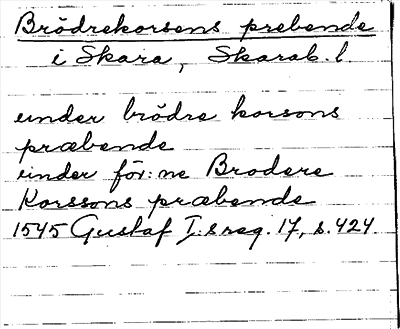 Brödrekorsens prebende
i Skara, Skarab. l.
under brödre korsons
præbende
under för: ne Brodere
Korssons præbende
1545 Gustaf I:s reg. 17, s. 424